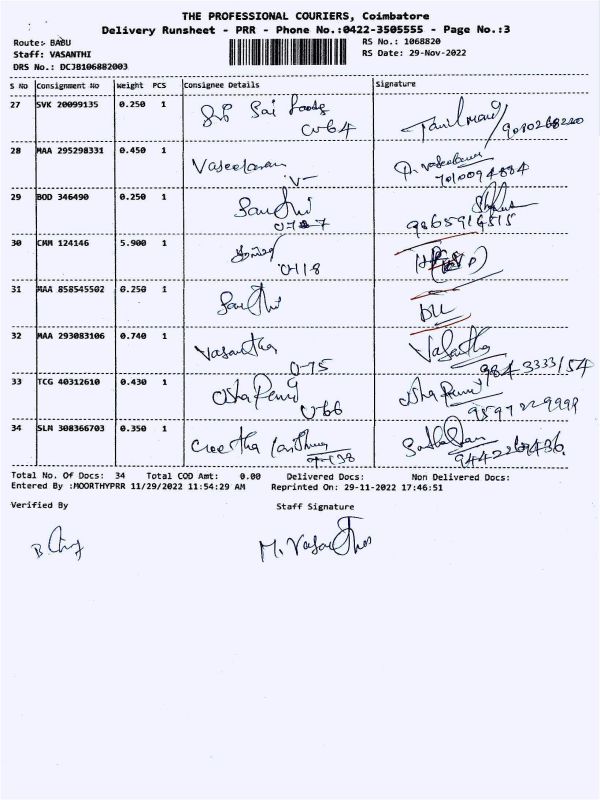 THE PROFESSIONAL COURIERS, Coimbatore
Delivery Runsheet - PRR - Phone No.:0422-3505555 - Page No.:3
Route:- BABU
RS No.: 1068820
Staff: VASANTHI
RS Date: 29-Nov-2022
DRS No.: DCJB106882003
S No Consignment No Weight PCS Consignee Details Signature
27 SVK 20099135 0.250 1 Sri Sai Foods
28 MAA 295298331 0.450 1 Vaseekaran
29 BOD 346490 0.250 1 Santhi
9865916515
30 CMM 124146 5.900 1
31 MAA 858545502 0.250 1 Santhi
32 MAA 293083106 0.740 1 Vasantha Vasantha
U-75 9843333154
33 TCG 40312610 0.430 1 Usha Rani Usha Rani
U-66
34 SLN 308366703 0.350 1 Geetha
Total No. Of Docs: 34 Total COD Amt: 0.00 Delivered Docs: Non Delivered Docs:
Entered By :MOORTHYPRR 11/29/2022 11:54:29 AM Reprinted On: 29-11-2022 17:46:51
Verified By Staff Signature
M. Vasantha